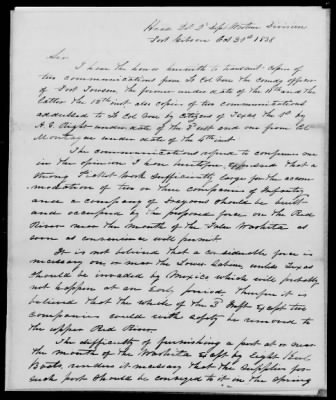 Head Qrs 2d Dept Western Division
Fort Gibson Oct 31st 1838
Sir,
I have the honor herewith to transmit copies of
two communications from Lt Col Vose the comdg officer
of Fort Towson, the former under date of the 11th and the
latter the 12th inst. also copies of two communications
addressed to Lt Col Vose by citizens of Texas the 1st by
under date of the 3d inst and one from Col
under date of the 4th inst
The communications refered to confirm me
in the opinion I have heretofore expressed that a
strong Picket work sufficiently large for the accom-
modation of two or three companies of Infantry
and a company of Dragoons should be built
and occupied by the proposed force on the Red
River near the mouth of the False Washita as
soon as convenience will permit
It is not believed that a considerable force is
necessary on or near the lower Sabine, unless Texas
should be invaded by Mexico which will probably
not happen at an early period. Therefore it is
believed that the whole of the 3d Inft. except two
companies could with safety be removed to
the upper Red River.
The difficulty of furnishing a post at or near
the mouth of the Washita except by light Keel
Boats, renders it necessary that the supplies for
such post should be conveyed to it in the Spring